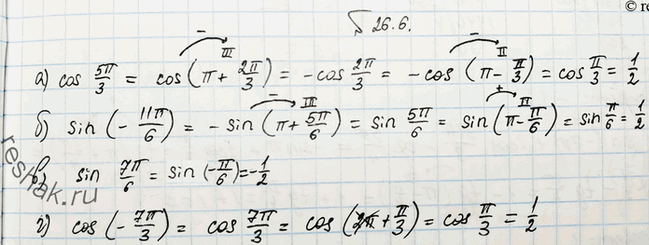 § 26.6.
а) cos 5π/3 = cos(π + 2π/3) = -cos 2π/3 = -cos(π - π/3) = cos π/3 = 1/2
б) sin(-11π/6) = -sin(π + 5π/6) = sin 5π/6 = sin(π - π/6) = sin π/6 = 1/2
в) sin 7π/6 = sin(-π/6) = -1/2
г) cos(-7π/3) = cos 7π/3 = cos(2π + π/3) = cos π/3 = 1/2
reshak.ru